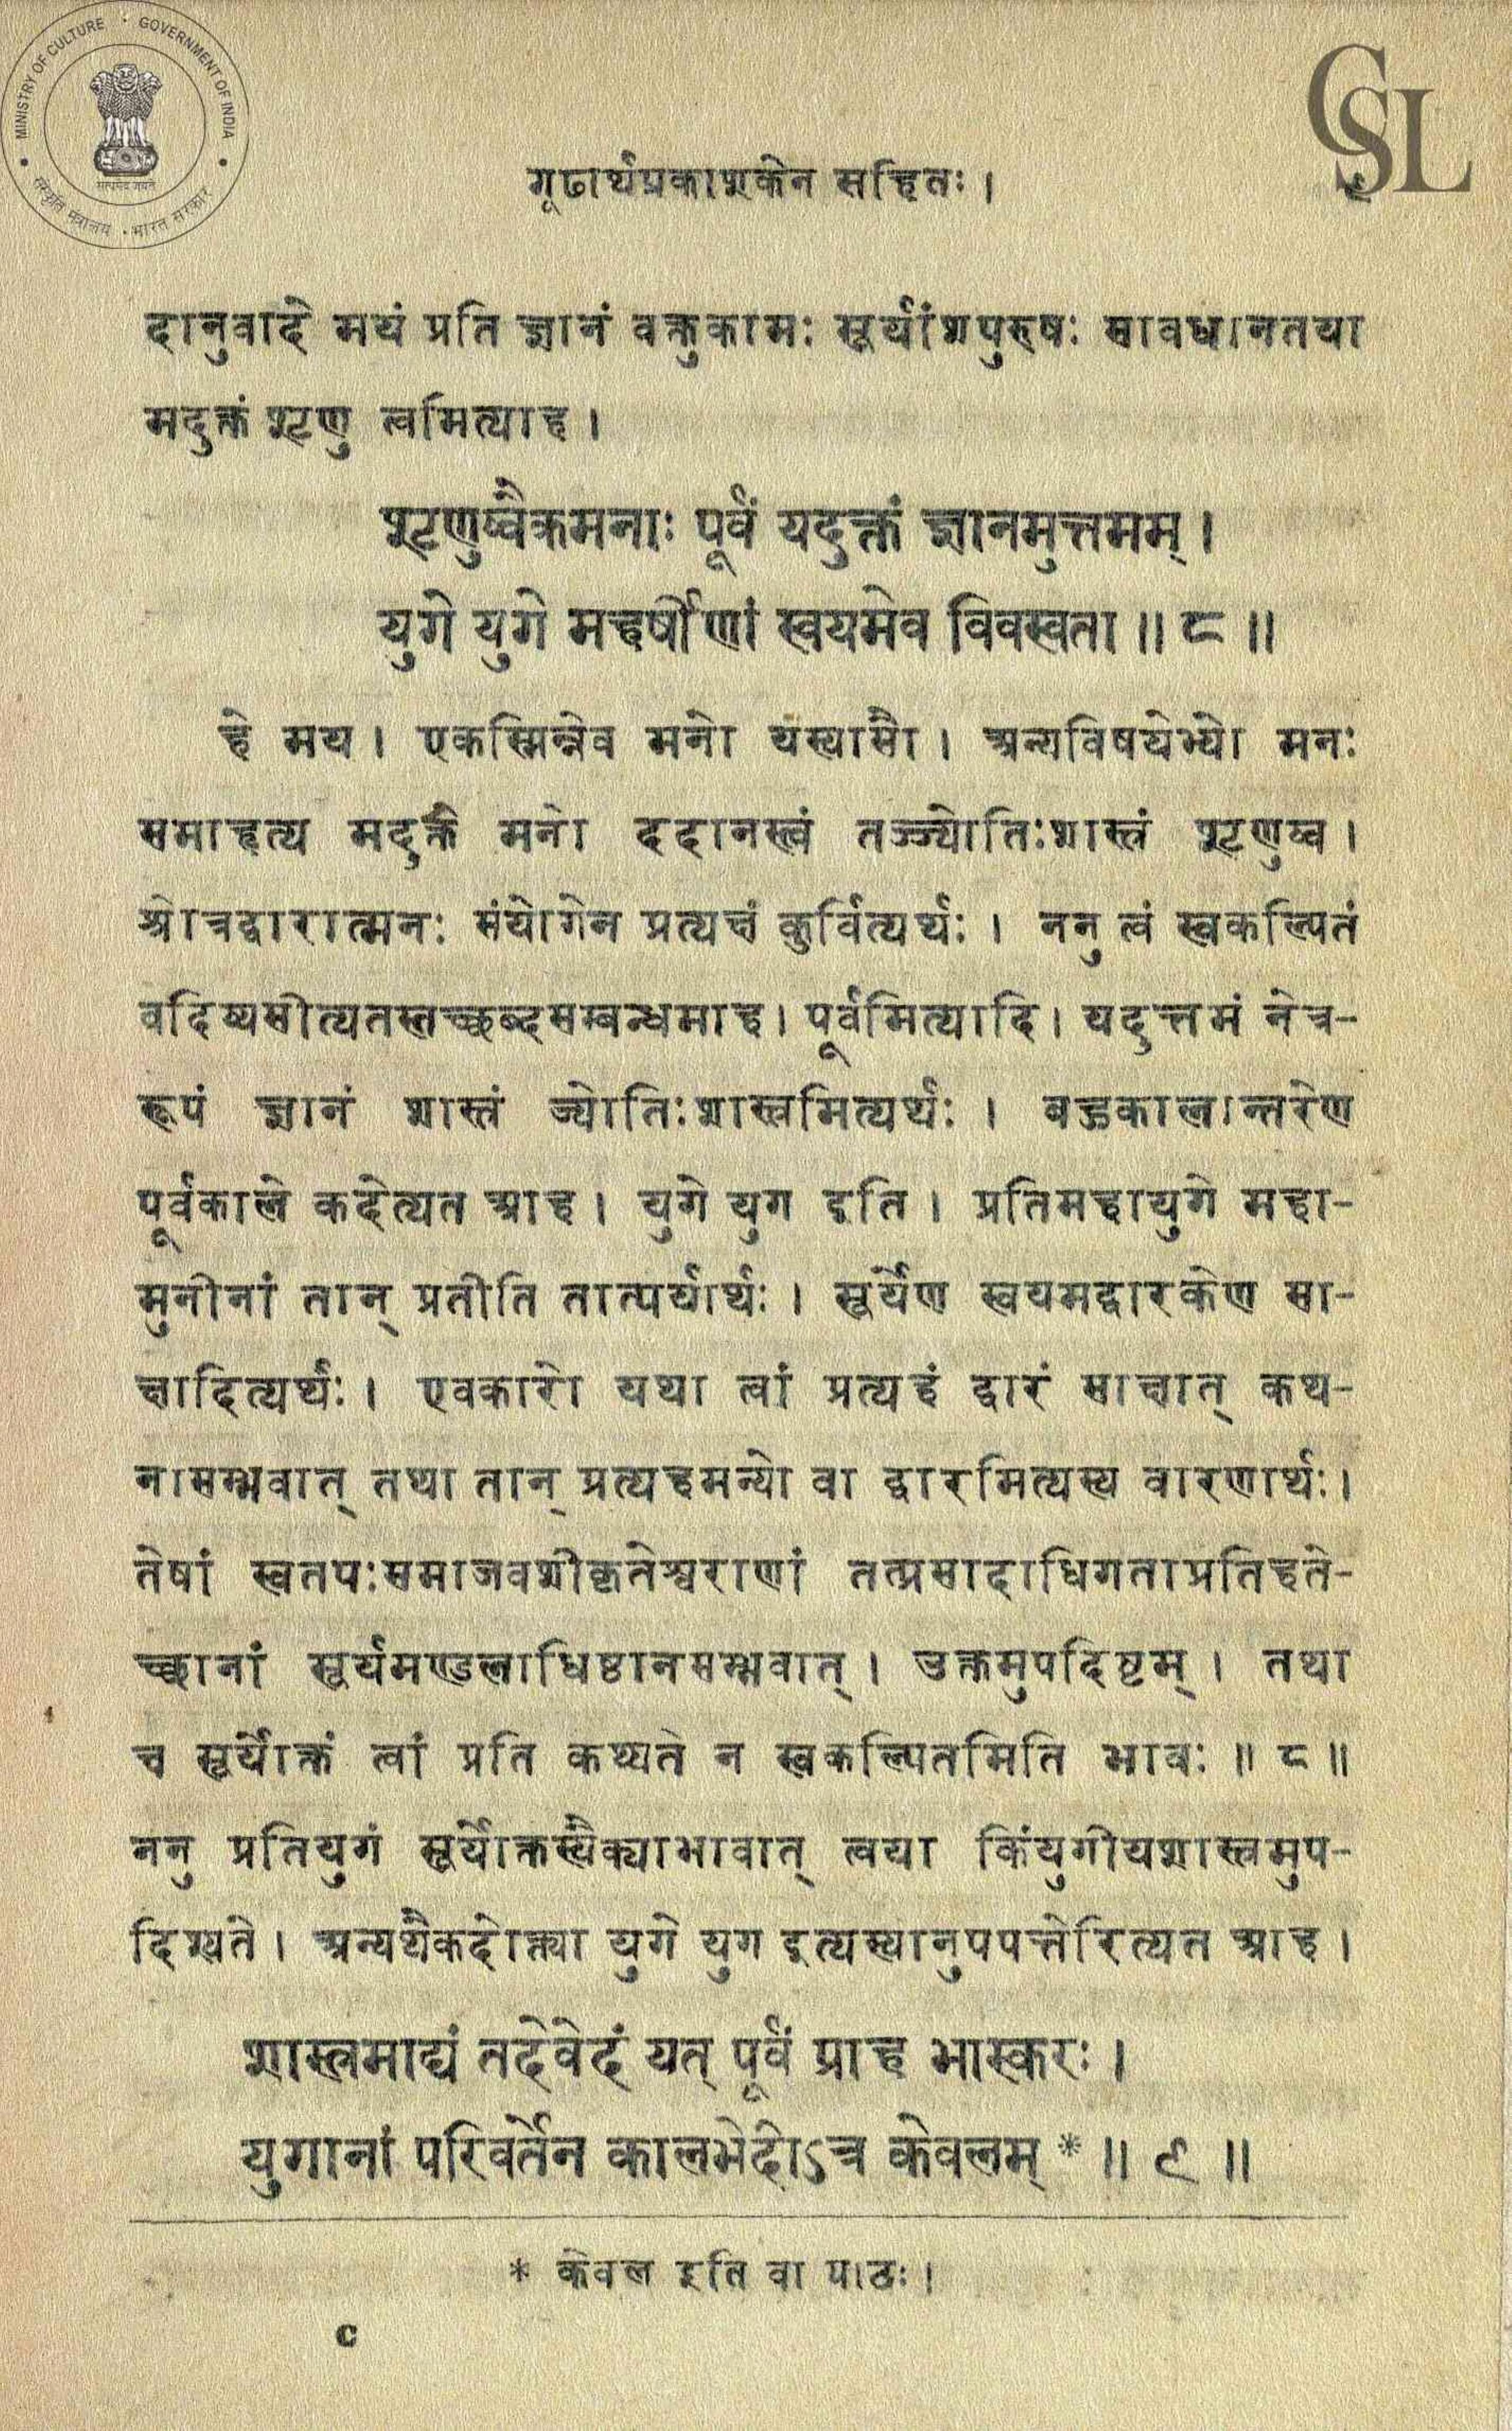 MINISTRY OF CULTURE · GOVERNMENT OF INDIA
सत्यमेव जयते
संस्कृति मंत्रालय · भारत सरकार
CSL
गूढार्थप्रकाशकेन सहितः। ९
दानुवादे मयं प्रति ज्ञानं वक्तुकामः सूर्यांशपुरुषः सावधानतया
मदुक्तं शृणु त्वमित्याह।
शृणुष्वैकमनाः पूर्वं यदुक्तं ज्ञानमुत्तमम्।
युगे युगे महर्षीणां स्वयमेव विवस्वता॥ ८॥
हे मय। एकस्मिन्नेव मनो यस्यासौ। अन्यविषयेभ्यो मनः
समाहृत्य मदुक्ते मनो ददानस्त्वं तज्ज्योतिःशास्त्रं शृणुष्व।
श्रोत्रद्वारात्मनः संयोगेन प्रत्यक्षं कुर्वित्यर्थः। ननु त्वं स्वकल्पितं
वदिष्यसीत्यतस्तच्छब्दसम्बन्धमाह। पूर्वमित्यादि। यदुत्तमं नेत्र-
रूपं ज्ञानं शास्त्रं ज्योतिःशास्त्रमित्यर्थः। बहुकालान्तरेण
पूर्वकाले कदेत्यत आह। युगे युग इति। प्रतिमहायुगे महा-
मुनीनां तान् प्रतीति तात्पर्यार्थः। सूर्येण स्वयमद्वारकेण सा-
क्षादित्यर्थः। एवकारो यथा त्वां प्रत्यहं द्वारं साक्षात् कथ-
नासम्भवात् तथा तान् प्रत्यहमन्यो वा द्वारमित्यस्य वारणार्थः।
तेषां स्वतपःसमाजवशीकृतेश्वराणां तत्प्रसादाधिगताप्रतिहते-
च्छानां सूर्यमण्डलाधिष्ठानसम्भवात्। उक्तमुपदिष्टम्। तथा
च सूर्योक्तं त्वां प्रति कथ्यते न स्वकल्पितमिति भावः॥ ८॥
ननु प्रतियुगं सूर्योक्तस्यैक्याभावात् त्वया किंयुगीयशास्त्रमुप-
दिश्यते। अन्यथैकदोक्त्या युगे युग इत्यस्यानुपपत्तेरित्यत आह।
शास्त्रमाद्यं तदेवेदं यत् पूर्वं प्राह भास्करः।
युगानां परिवर्तेन कालभेदोऽत्र केवलम् *॥ ९॥
* केवल इति वा पाठः।
C